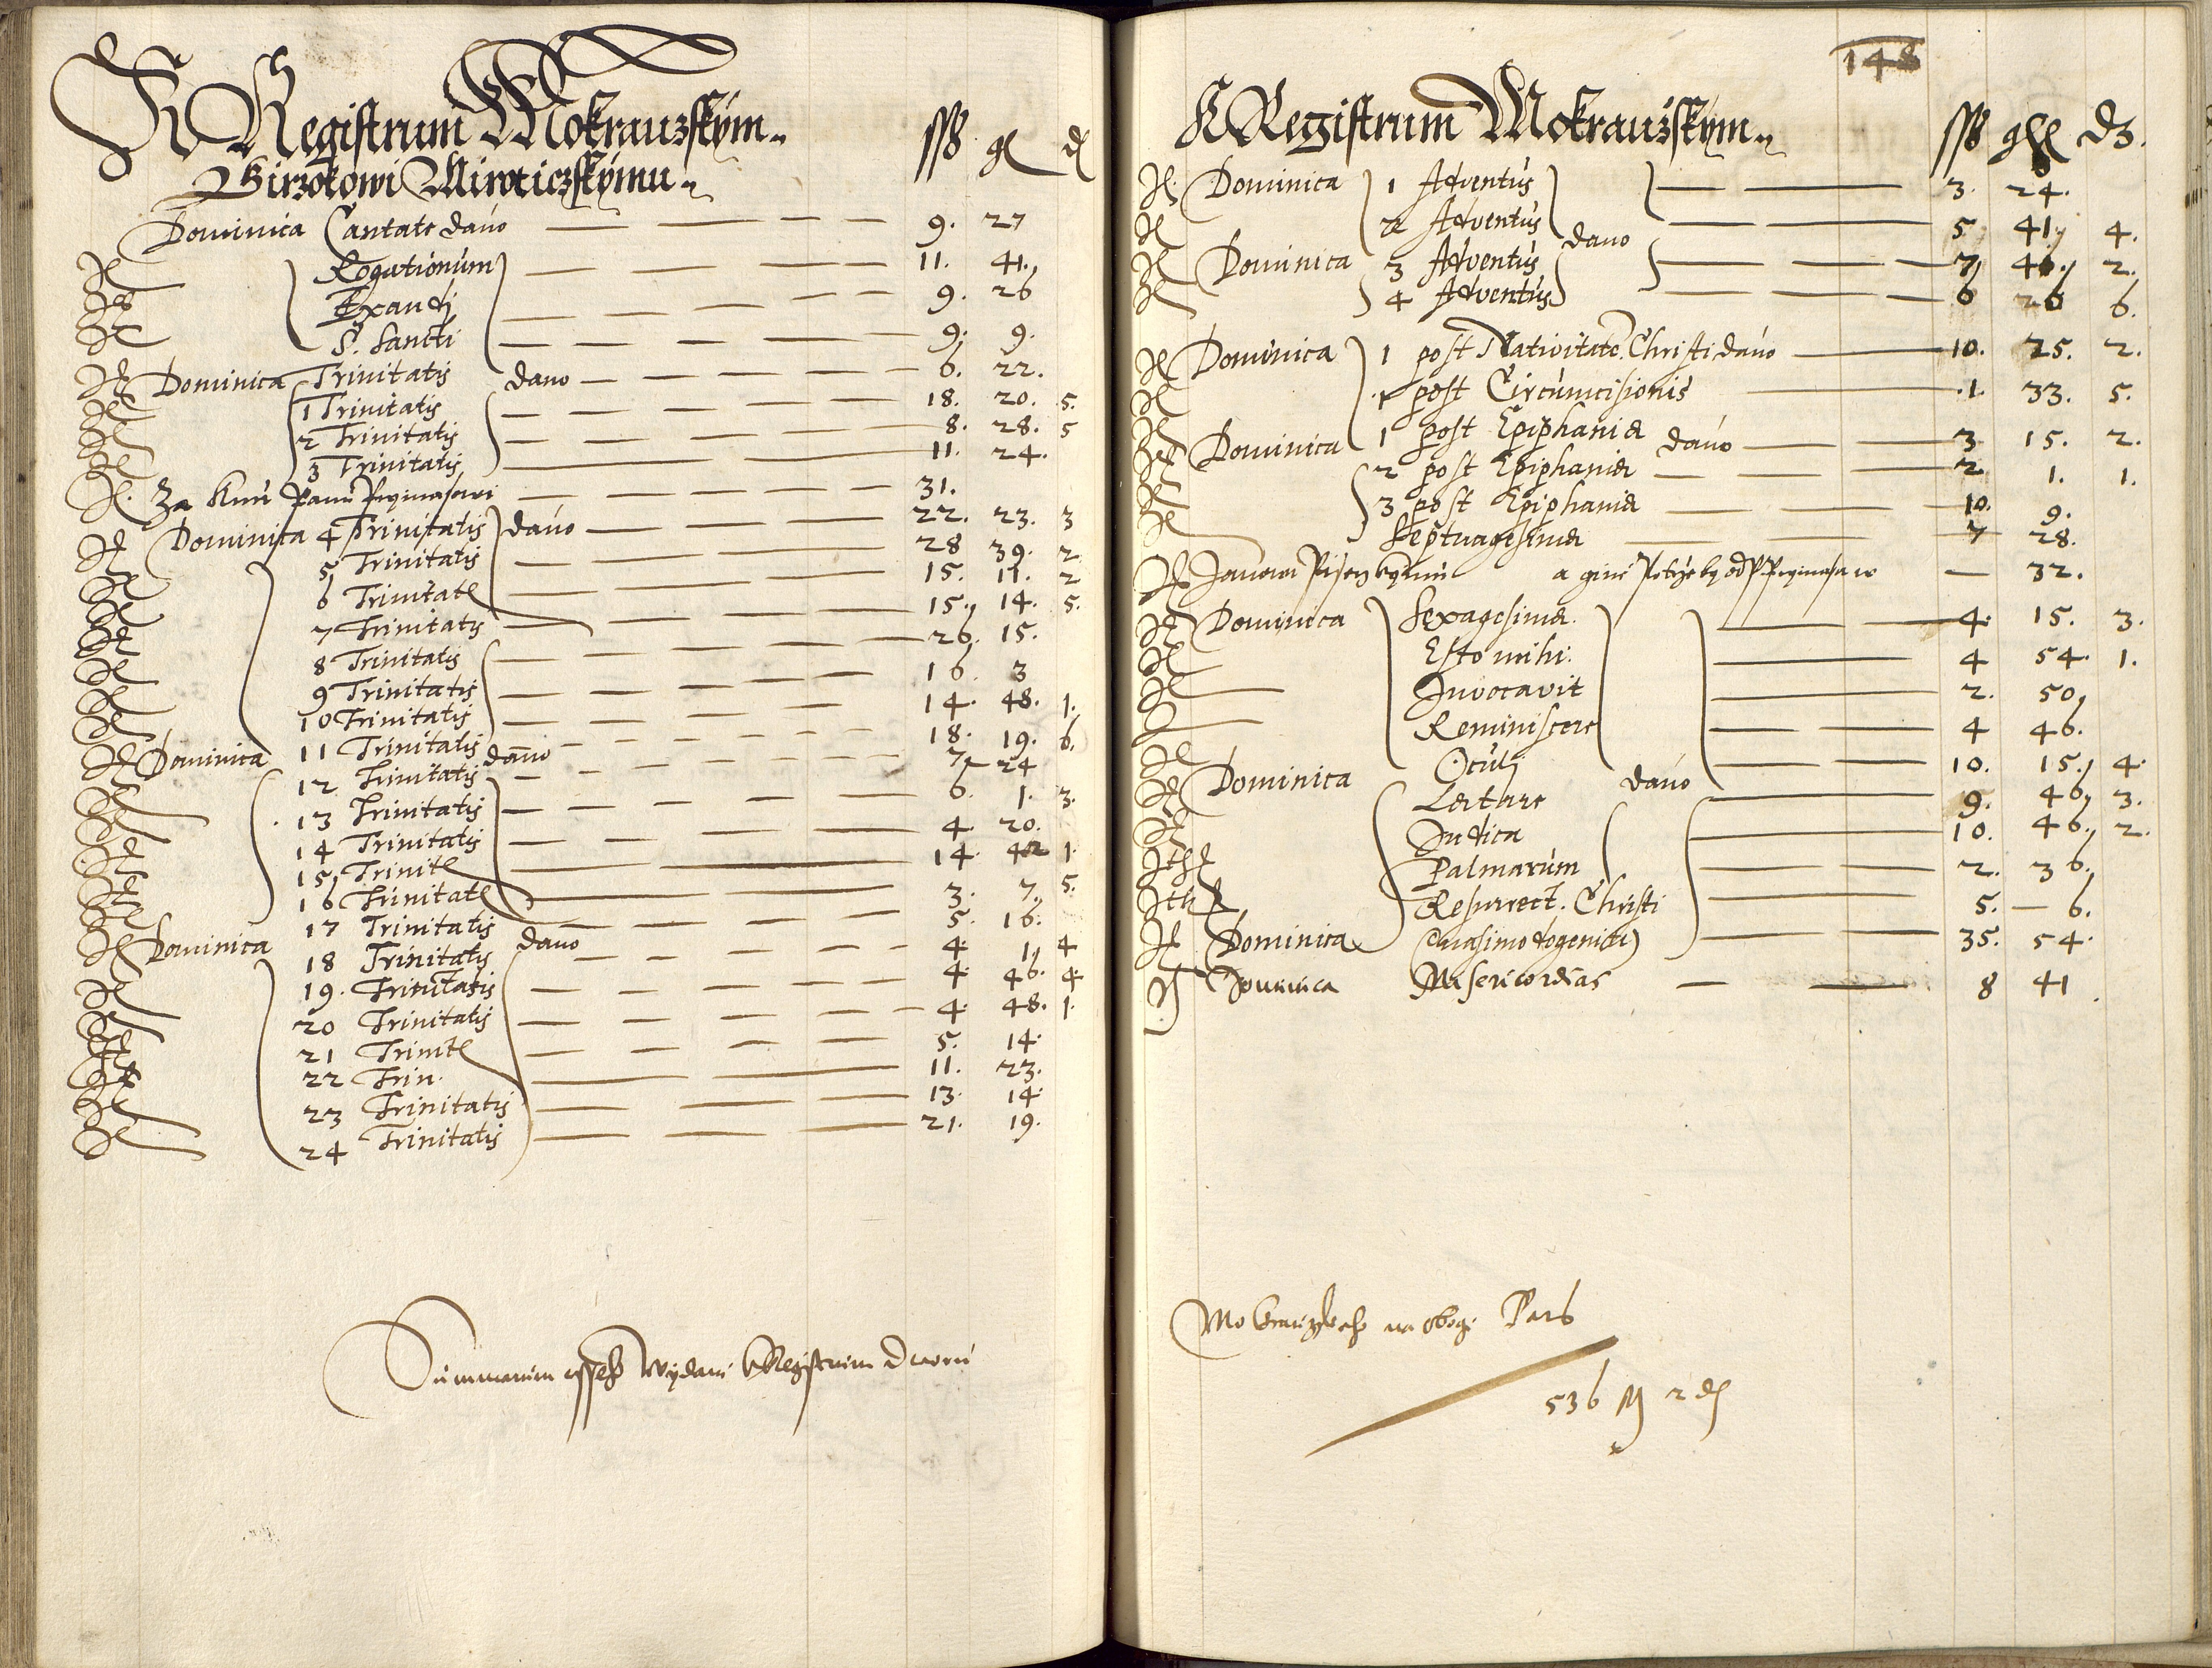 K Registrum Mokrauzskym ß gl d
Girzikowi Miroticzskymu
Dominica Cantate dano 9. 27
Rogationum 11. 41.
Exaudi 9. 26
S. Sancti 9. 9.
Dominica Trinitatis dano 6. 22.
1 Trinitatis 18. 20. 5.
2 Trinitatis 8. 28. 5
3 Trinitatis 11. 24.
Za Panu 31.
Dominica 4 Trinitatis dano 22. 23. 3
5 Trinitatis 28 39. 2
6 Trinitat 15. 11. 2
7 Trinitatis 15. 14. 5.
8 Trinitatis 26. 15.
9 Trinitatis 16. 3
10 Trinitatis 14. 48. 1.
Dominica 11 Trinitatis dano 18. 19. 6.
12 Trinitatis 7 24
13 Trinitatis 6. 1. 3.
14 Trinitatis 4. 20.
15 Trinit 14. 42 1.
16 Trinitat 3. 7. 5.
17 Trinitatis 5. 16.
Dominica 18 Trinitatis dano 4. 1. 4
19. Trinitatis 4. 46. 4.
20 Trinitatis 4. 48. 1.
21 Trinit 5. 14.
22 Trin. 11. 23.
23 Trinitatis 13. 14.
24 Trinitatis 21. 19.
Summarum wydani Registrum
148
K Registrum Mokrauzskym ß
Dominica 1 Adventus 3. 24.
2 Adventus dano 5 41 4.
Dominica 3 Adventus 7 46. 2.
4 Adventus 6 26 6.
Dominica 1 post Nativitate Christi dano 10. 25. 2.
1 post Circumcisionis 1. 33. 5.
Dominica 1 post Epiphania dano 3 15. 2.
2 post Epiphania 2 1. 1.
3 post Epiphania 10. 9.
Septuagesima 7 28.
a gine 32.
Dominica Sexagesima 4. 15. 3.
Esto mihi. 4 54. 1.
Invocavit 2. 50
Reminiscere 4 46.
Oculi 10. 15. 4.
Dominica Lætare dano 9. 46 3.
Judica 10. 46. 2.
Palmarum 2. 36.
Resurrect. Christi 5. — 6.
Dominica Quasimodogeniti 35. 54.
Dominica Misericordias 8 41
na obogi
536 2 d